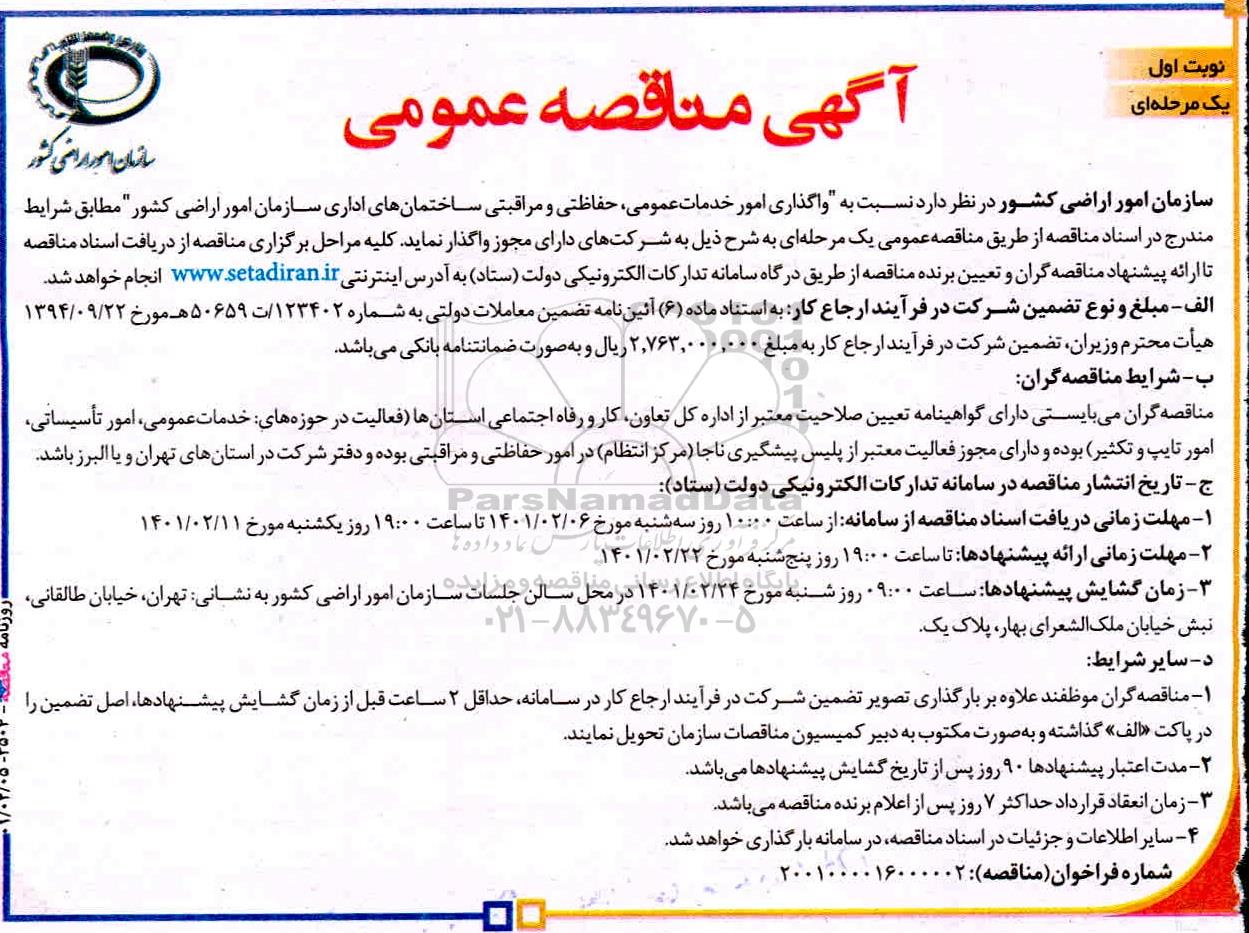 نوبت اول
یک مرحله‌ای
آگهی مناقصه عمومی
سازمان امور اراضی کشور
سازمان امور اراضی کشـور در نظر دارد نسـبت به "واگذاری امور خدمات‌عمومی، حفاظتی و مراقبتی ساختمان‌های اداری سازمان امور اراضی کشور" مطابق شرایط
مندرج در اسناد مناقصه از طریق مناقصه‌عمومی یک مرحله‌ای به شرح ذیل به شرکت‌های دارای مجوز واگذار نماید. کلیه مراحل برگزاری مناقصه از دریافت اسناد مناقصه
تا ارائه پیشنهاد مناقصه‌گران و تعیین برنده مناقصه از طریق درگاه سامانه تدارکات الکترونیکی دولت (ستاد) به آدرس اینترنتی www.setadiran.ir انجام خواهد شد.
الف- مبلغ و نوع تضمین شرکت در فرآیند ارجاع کار: به استناد ماده (۶) آئین‌نامه تضمین معاملات دولتی به شماره ۱۲۳۴۰۲/ت ۵۰۶۵۹ هـ مورخ ۱۳۹۴/۰۹/۲۲
هیأت محترم وزیران، تضمین شرکت در فرآیند ارجاع کار به مبلغ ۲,۷۶۳,۰۰۰,۰۰۰ ریال و به‌صورت ضمانتنامه بانکی می‌باشد.
ب- شرایط مناقصه‌گران:
مناقصه‌گران می‌بایستی دارای گواهینامه تعیین صلاحیت معتبر از اداره کل تعاون، کار و رفاه اجتماعی استان‌ها (فعالیت در حوزه‌های: خدمات‌عمومی، امور تأسیساتی،
امور تایپ و تکثیر) بوده و دارای مجوز فعالیت معتبر از پلیس پیشگیری ناجا (مرکز انتظام) در امور حفاظتی و مراقبتی بوده و دفتر شرکت در استان‌های تهران و یا البرز باشد.
ج- تاریخ انتشار مناقصه در سامانه تدارکات الکترونیکی دولت (ستاد):
۱- مهلت زمانی دریافت اسناد مناقصه از سامانه: از ساعت ۱۰:۰۰ روز سه‌شنبه مورخ ۱۴۰۱/۰۲/۰۶ تا ساعت ۱۹:۰۰ روز یکشنبه مورخ ۱۴۰۱/۰۲/۱۱
۲- مهلت زمانی ارائه پیشنهادها: تا ساعت ۱۹:۰۰ روز پنج‌شنبه مورخ ۱۴۰۱/۰۲/۲۲
۳- زمان گشایش پیشنهادها: ساعت ۰۹:۰۰ روز شنبه مورخ ۱۴۰۱/۰۲/۲۴ در محل سالن جلسات سازمان امور اراضی کشور به نشانی: تهران، خیابان طالقانی،
نبش خیابان ملک‌الشعرای بهار، پلاک یک.
د- سایر شرایط:
۱- مناقصه‌گران موظفند علاوه بر بارگذاری تصویر تضمین شرکت در فرآیند ارجاع کار در سامانه، حداقل ۲ ساعت قبل از زمان گشایش پیشنهادها، اصل تضمین را
در پاکت «الف» گذاشته و به‌صورت مکتوب به دبیر کمیسیون مناقصات سازمان تحویل نمایند.
۲- مدت اعتبار پیشنهادها ۹۰ روز پس از تاریخ گشایش پیشنهادها می‌باشد.
۳- زمان انعقاد قرارداد حداکثر ۷ روز پس از اعلام برنده مناقصه می‌باشد.
۴- سایر اطلاعات و جزئیات در اسناد مناقصه، در سامانه بارگذاری خواهد شد.
شماره فراخوان (مناقصه): ۲۰۰۱۰۰۰۰۱۶۰۰۰۰۰۲
ParsNamadData
پایگاه اطلاع رسانی مناقصه و مزایده
۰۲۱-۸۸۳۴۹۶۷۰-۵
روزنامه مناقصه